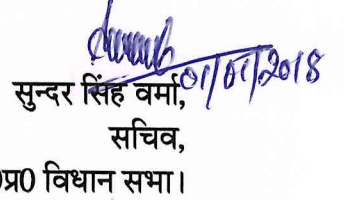 01/01/2018
सुन्दर सिंह वर्मा,
सचिव,
प्र0 विधान सभा।